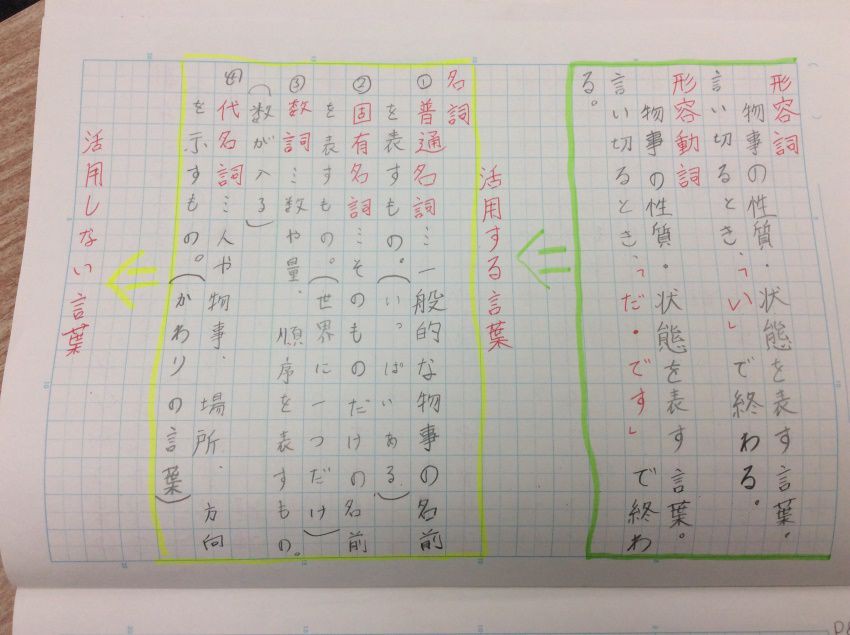 形容詞
物事の性質・状態を表す言葉。
言い切るとき、「い」で終わる。
形容動詞
物事の性質・状態を表す言葉。
言い切るとき、「だ・です」で終わ
る。
活用する言葉
名詞
①普通名詞…一般的な物事の名前
を表すもの。(いっぱいある)
②固有名詞…そのものだけの名前
を表すもの。(世界に一つだけ)
③数詞…数や量、順序を表すもの。
(数が入る)
④代名詞…人や物事、場所、方向
を示すもの。(かわりの言葉)
活用しない言葉